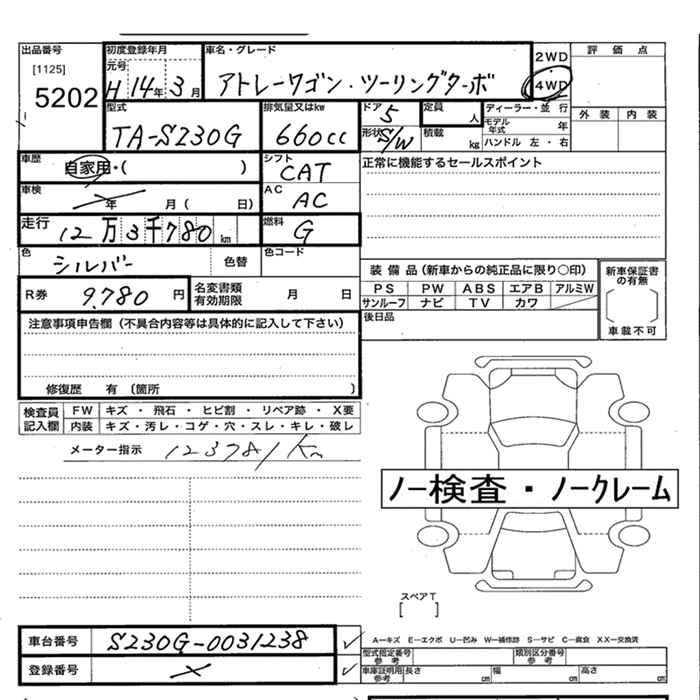 出品番号
[1125]
5202
初度登録年月
元号
H 14年 3月
車名・グレード
アトレーワゴン・ツーリングターボ
2WD
4WD
評価点
外装 内装
型式
TA-S230G
排気量又はkw
660cc
ドア 5
形状 S/W
定員 人
積載 kg
ディーラー・並行
モデル年式 年
ハンドル 左・右
車歴
自家用・( )
シフト
CAT
正常に機能するセールスポイント
車検
年 月 ( 日)
AC
AC
走行
12万3千780km
燃料
G
色
シルバー
色替
色コード
R券
9,780 円
名変書類
有効期限
月 日
装備品(新車からの純正品に限り○印)
PS PW ABS エアB アルミW
サンルーフ ナビ TV カワ
新車保証書
の有無
[ ]
車載不可
後日品
注意事項申告欄(不具合内容等は具体的に記入して下さい)
修復歴 有 (箇所 )
検査員
記入欄
FW キズ・飛石・ヒビ割・リペア跡・X要
内装 キズ・汚レ・コゲ・穴・スレ・キレ・破レ
メーター指示 123781km
ノー検査・ノークレーム
スペアT
[ ]
車台番号
S230G-0031238
登録番号
A-キズ E-エクボ U-凹み W-補修跡 S-サビ C-腐食 XX-交換済
型式指定番号
参考
類別区分番号
参考
車庫証明用
参考
長さ cm 幅 cm 高さ cm